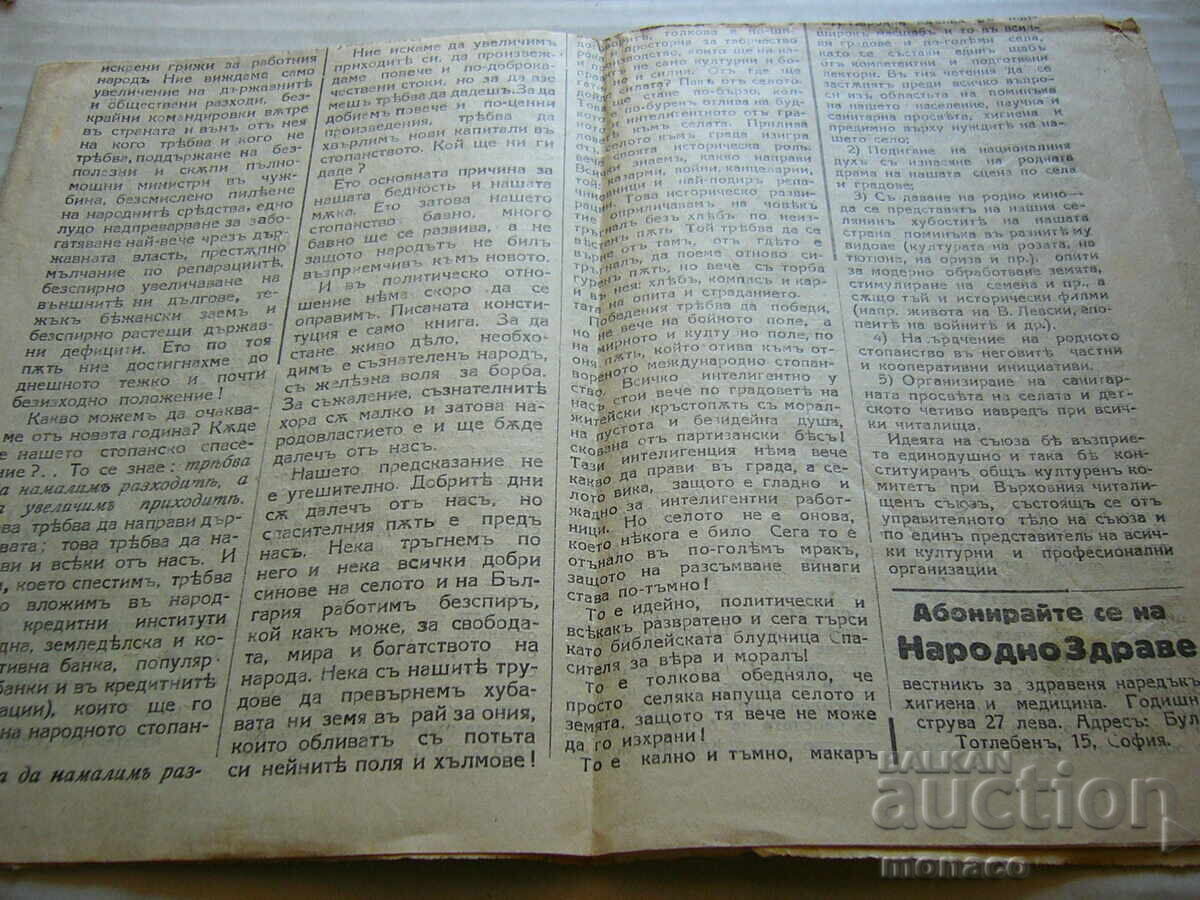 искрени грижи за работния
народъ Ние виждаме само
увеличение на държавнитѣ
и обществени разходи, без-
крайни командировки вѫтре
въ страната и вънъ отъ нея
на кого трѣбва и кого не
трѣбва, поддържане на без-
полезни и скѫпи пълно-
мощни министри въ чуж-
бина, безсмислено пилѣене
на народнитѣ срѣдства, едно
лудо надпреварване за забо-
гатяване най-вече чрезъ дър-
жавната власть, престѫпно
мълчание по репарациитѣ,
безспирно увеличаване на
външнитѣ ни дългове, те-
жъкъ бѣжански заемъ и
безспирно растещи държав-
ни дефицити. Ето по тоя
пѫть ние достигнахме до
днешното тежко и почти
безизходно положение!
Какво можемъ да очаква-
ме отъ новата година? Кѫде
е нашето стопанско спасе-
ние?.. То се знае: трѣбва
а намалимъ разходитѣ, а
а увеличимъ приходитѣ.
ва трѣбва да направи дър-
вата; това трѣбва да на-
ви и всѣки отъ насъ. И
, което спестимъ, трѣбва
о вложимъ въ народ-
кредитни институти
дна, земледѣлска и ко-
тивна банка, популяр
банки и въ кредитнитѣ
ации), които ще го
на народното стопан-
а да намалимъ раз-
Ние искаме да увеличимъ
приходитѣ си, да произвеж-
даме повече и по-доброка-
чествени стоки, но за да взе
мешъ трѣбва да дадешъ. За да
добиемъ повече и по-ценни
произведения, трѣбва да
хвърлимъ нови капитали въ
стопанството. Кой ще ни ги
даде?
Ето основната причина за
нашата бедность и нашата
мѫка. Ето затова нашето
стопанство бавно, много
бавно ще се развива, а не
защото народътъ не билъ
възприемчивъ къмъ новото.
И въ политическо отно-
шение нѣма скоро да се
оправимъ. Писаната консти-
туция е само книга. За да
стане живо дѣло, необхо-
димъ е съзнателенъ народъ,
съ желѣзна воля за борба.
За съжаление, съзнателнитѣ
хора сѫ малко и затова на-
родовластието е и ще бѫде
далечъ отъ насъ.
Нашето предсказание не
е утешително. Добритѣ дни
сѫ далечъ отъ насъ, но
спасителния пѫть е предъ
насъ. Нека тръгнемъ по
него и нека всички добри
синове на селото и на Бъл-
гария работимъ безспиръ,
кой какъ може, за свобода-
та, мира и богатството на
народа. Нека съ нашитѣ тру-
дове да превърнемъ хуба-
вата ни земя въ рай за ония,
които обливатъ съ потьта
си нейнитѣ поля и хълмове!
толкова е по-ша-
и просторна за творчество
колкото ще на-
не само културни и бо-
и силни. Отъ где ще
силата? Пакъ отъ селото.
ще стане по-бързо, кол-
по-буренъ отлива на буд-
интелигентното отъ гра-
къмъ селата. Прилива
селото къмъ града изигра
историческа роль.
знаемъ, какво направи
казарми, войни, канцеларии,
и най-подиръ репа-
Това историческо разви-
оприличавамъ на човѣкъ
безъ хлѣбъ по неиз-
пѫть. Той трѣбва да се
отъ тамъ, отъ гдѣто е
да поеме отново си-
пѫть, но вече съ торба
нея: хлѣбъ, компасъ и кар-
на опита и страданието.
Победения трѣбва да победи,
не вече на бойното поле, а
мирното и културно поле, по
пѫть, който отива къмъ от-
вореното международно стопан-
ство. Всичко интелигентно у
насъ стои вече по градоветѣ на
житейски кръстопѫть съ морал-
на пустота и безидейна душа,
скована отъ партизански бѣсъ!
Тази интелигенция нѣма вече
какво да прави въ града, а се-
лото вика, защото е гладно и
жадно за интелигентни работ-
ници. Но селото не е онова,
което нѣкога е било Сега то е
отънало въ по-голѣмъ мракъ,
защото на разсъмване винаги
става по-тъмно!
То е идейно, политически и
всѣкакъ развратено и сега търси
като библейската блудница Спа-
сителя за вѣра и моралъ!
То е толкова обедняло, че
просто селяка напуща селото и
земята, защото тя вече не може
да го изхрани!
То е кално и тъмно, макаръ
широкъ мащабъ и то въ всич-
ки градове и по-голѣми села,
като се състави единъ щабъ
отъ компетентни и подготвени
лектори. Въ тия четения да се
застѫпятъ преди всичко въпро-
си изъ областьта на поминъка
на нашето население, научна и
санитарна просвѣта, хигиена и
предимно върху нуждитѣ на на-
шето село;
2) Подигане на националния
духъ съ изнасяне на родната
драма на нашата сцена по села
и градове;
3) Съ даване на родно кино—
да се представятъ на нашия се-
лянинъ хубоститѣ на нашата
страна поминъка въ разнитѣ му
видове (културата на розата, на
тютюна, на ориза и пр.), опити
за модерно обработване земята,
стимулиране на семена и пр., а
сѫщо тъй и исторически филми
(напр. живота на В. Левски, епо-
пеитѣ на войнитѣ и др.).
4) Насърчение на родното
стопанство въ неговитѣ частни
и кооперативни инициативи.
5) Организиране на санитар-
ната просвѣта на селата и дет-
ското четиво навредъ при всич-
ки читалища.
Идеята на съюза бѣ възприе-
та единодушно и така бѣ кон-
ституиранъ общъ културенъ ко-
митетъ при Върховния читали-
щенъ съюзъ, състоящъ се отъ
управителното тѣло на съюза и
по единъ представитель на всич-
ки културни и професионални
организации
Абонирайте се на
Народно Здраве
вестникъ за здравеня наредъкъ
хигиена и медицина. Годишн
струва 27 лева. Адресъ: Бул
Тотлебенъ, 15, София.
BALKAN
auction
monaco